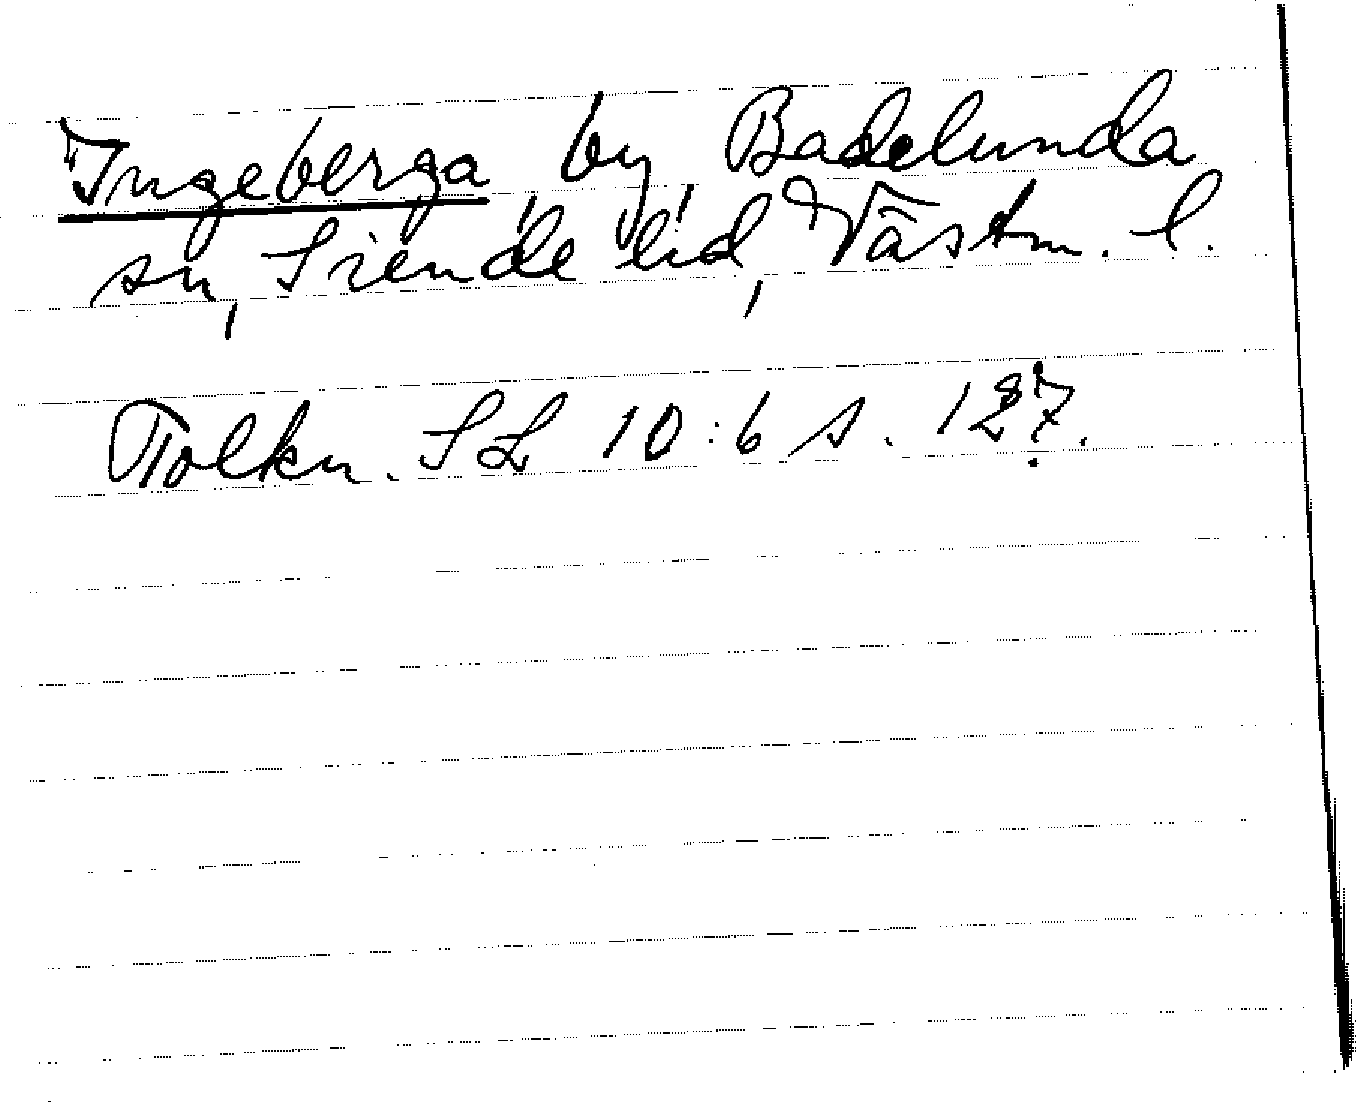 Ingeberga by, Badelunda
sn, Siende hd, Västm. l.
Tolkn. SL 10:6 s. 127.